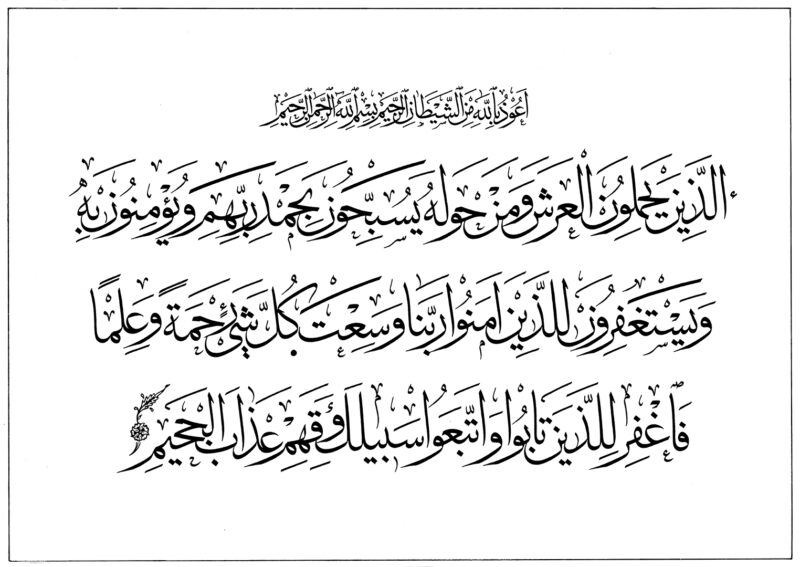 اَعُوْذُ بِاللّٰهِ مِنَ الشَّيْطَانِ الرَّجِيْمِ بِسْمِ اللّٰهِ الرَّحْمٰنِ الرَّحِيْمِ
اَلَّذِيْنَ يَحْمِلُوْنَ الْعَرْشَ وَمَنْ حَوْلَهُ يُسَبِّحُوْنَ بِحَمْدِ رَبِّهِمْ وَيُؤْمِنُوْنَ بِهِ
وَيَسْتَغْفِرُوْنَ لِلَّذِيْنَ اٰمَنُوْا رَبَّنَا وَسِعْتَ كُلَّ شَيْءٍ رَحْمَةً وَعِلْمًا
فَاغْفِرْ لِلَّذِيْنَ تَابُوْا وَاتَّبَعُوْا سَبِيْلَكَ وَقِهِمْ عَذَابَ الْجَحِيْمِ